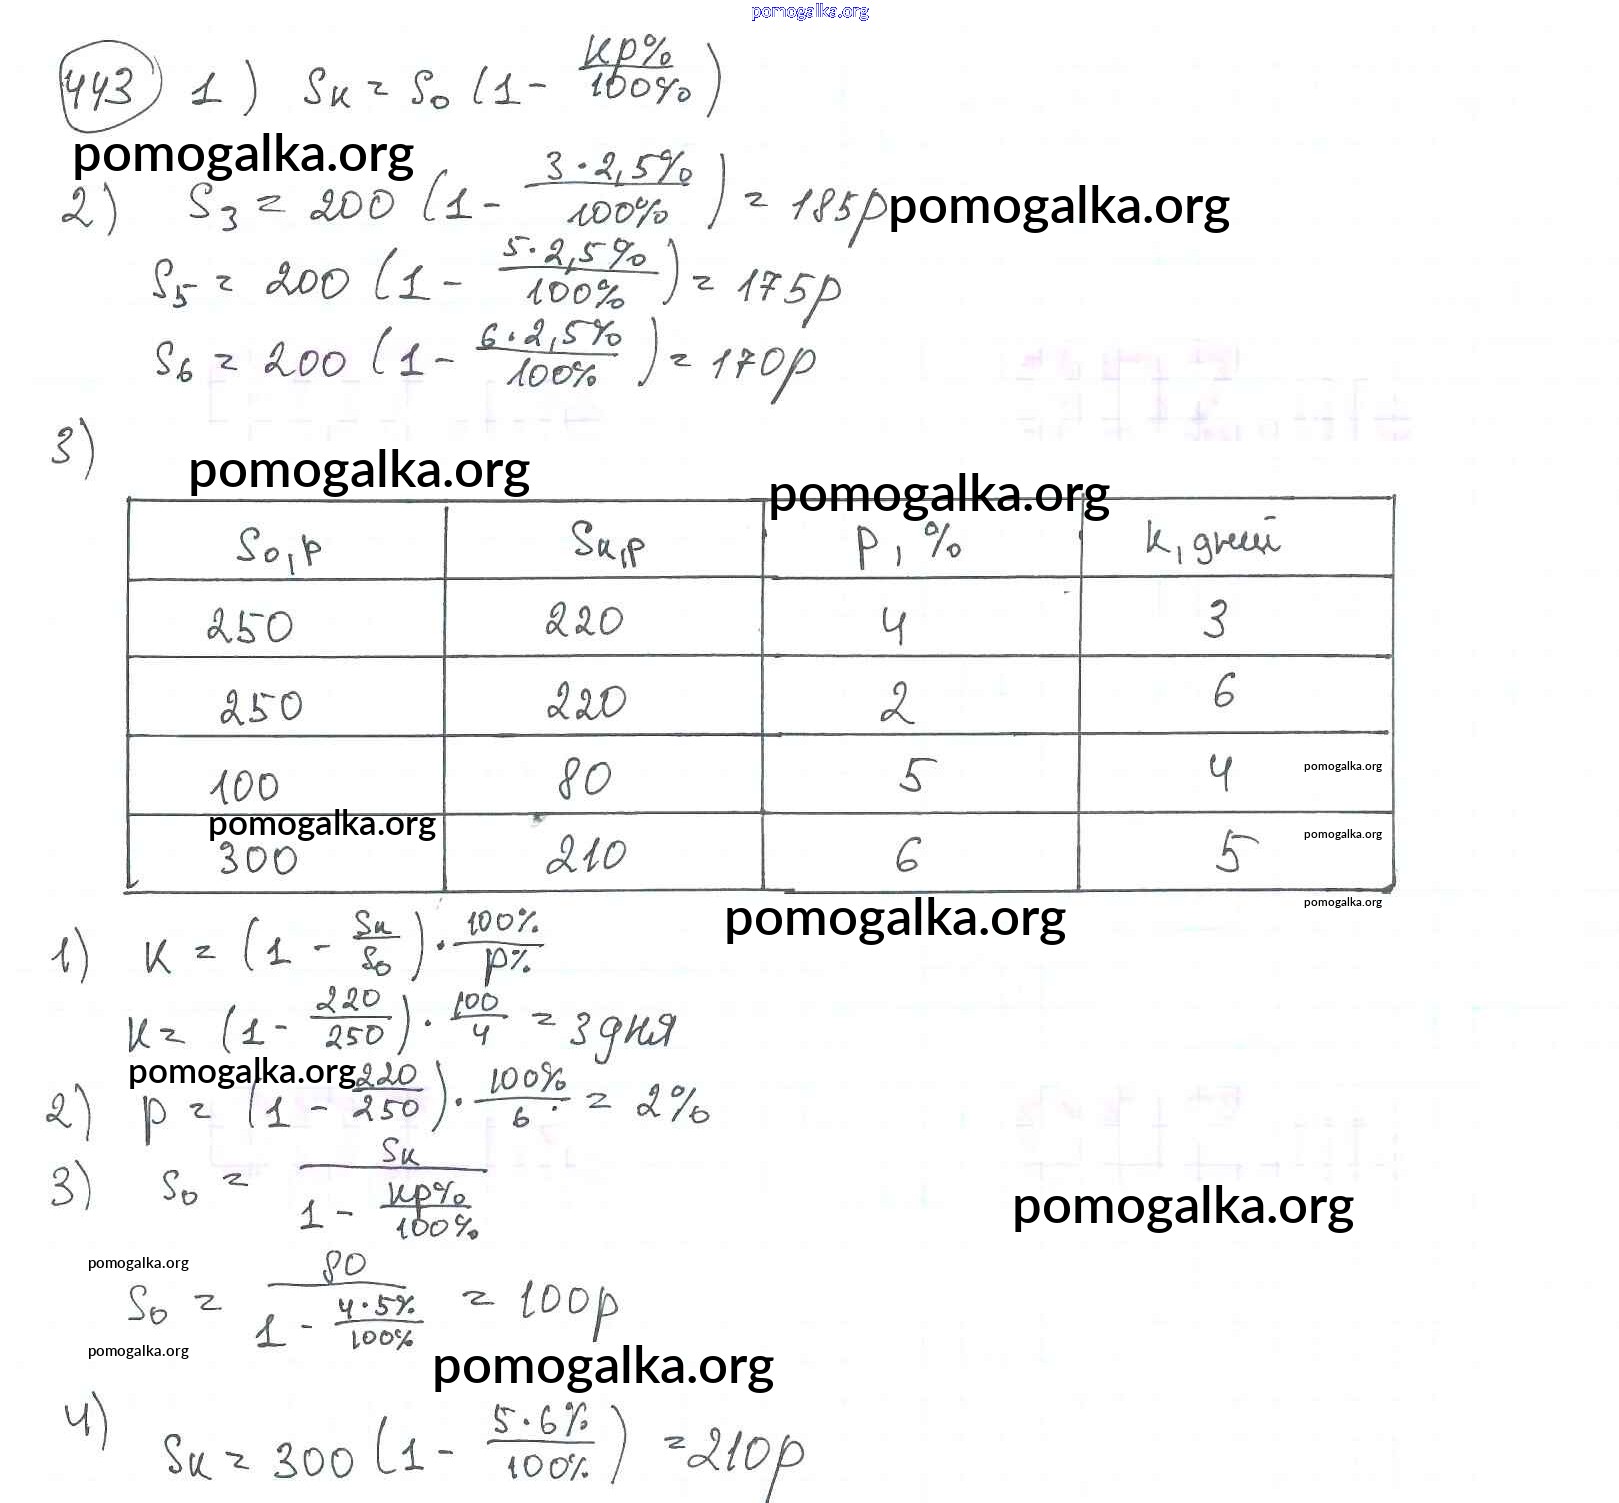 pomogalka.org
443 1) Sк = S₀ (1 - кр%/100%)
pomogalka.org
2) S₃ = 200 (1 - 3·2,5%/100%) = 185р pomogalka.org
S₅ = 200 (1 - 5·2,5%/100%) = 175р
S₆ = 200 (1 - 6·2,5%/100%) = 170р
3)
pomogalka.org pomogalka.org
S₀,р Sк,р р, % к, дней
250 220 4 3
250 220 2 6
100 80 5 4 pomogalka.org
pomogalka.org pomogalka.org
300 210 6 5
pomogalka.org pomogalka.org
1) к = (1 - Sк/S₀) · 100%/р%
к = (1 - 220/250) · 100/4 = 3 дня
pomogalka.org
2) р = (1 - 220/250) · 100%/6 = 2%
3) S₀ = Sк/(1 - кр%/100%)
pomogalka.org
pomogalka.org
S₀ = 80/(1 - 4·5%/100%) = 100р
pomogalka.org pomogalka.org
4) Sк = 300 (1 - 5·6%/100%) = 210р